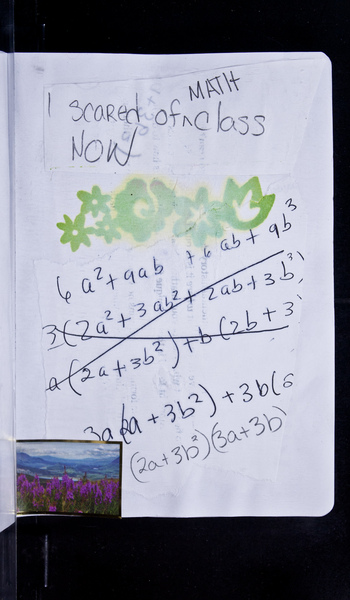 MATH
I scared of ^ class
NOW
6a²+9ab +6ab+9b³
3(2a²+3ab²+2ab+3b³)
a(2a+3b²)+b(2b+3
3a(2a+3b²)+3b(
(2a+3b²)(3a+3b)